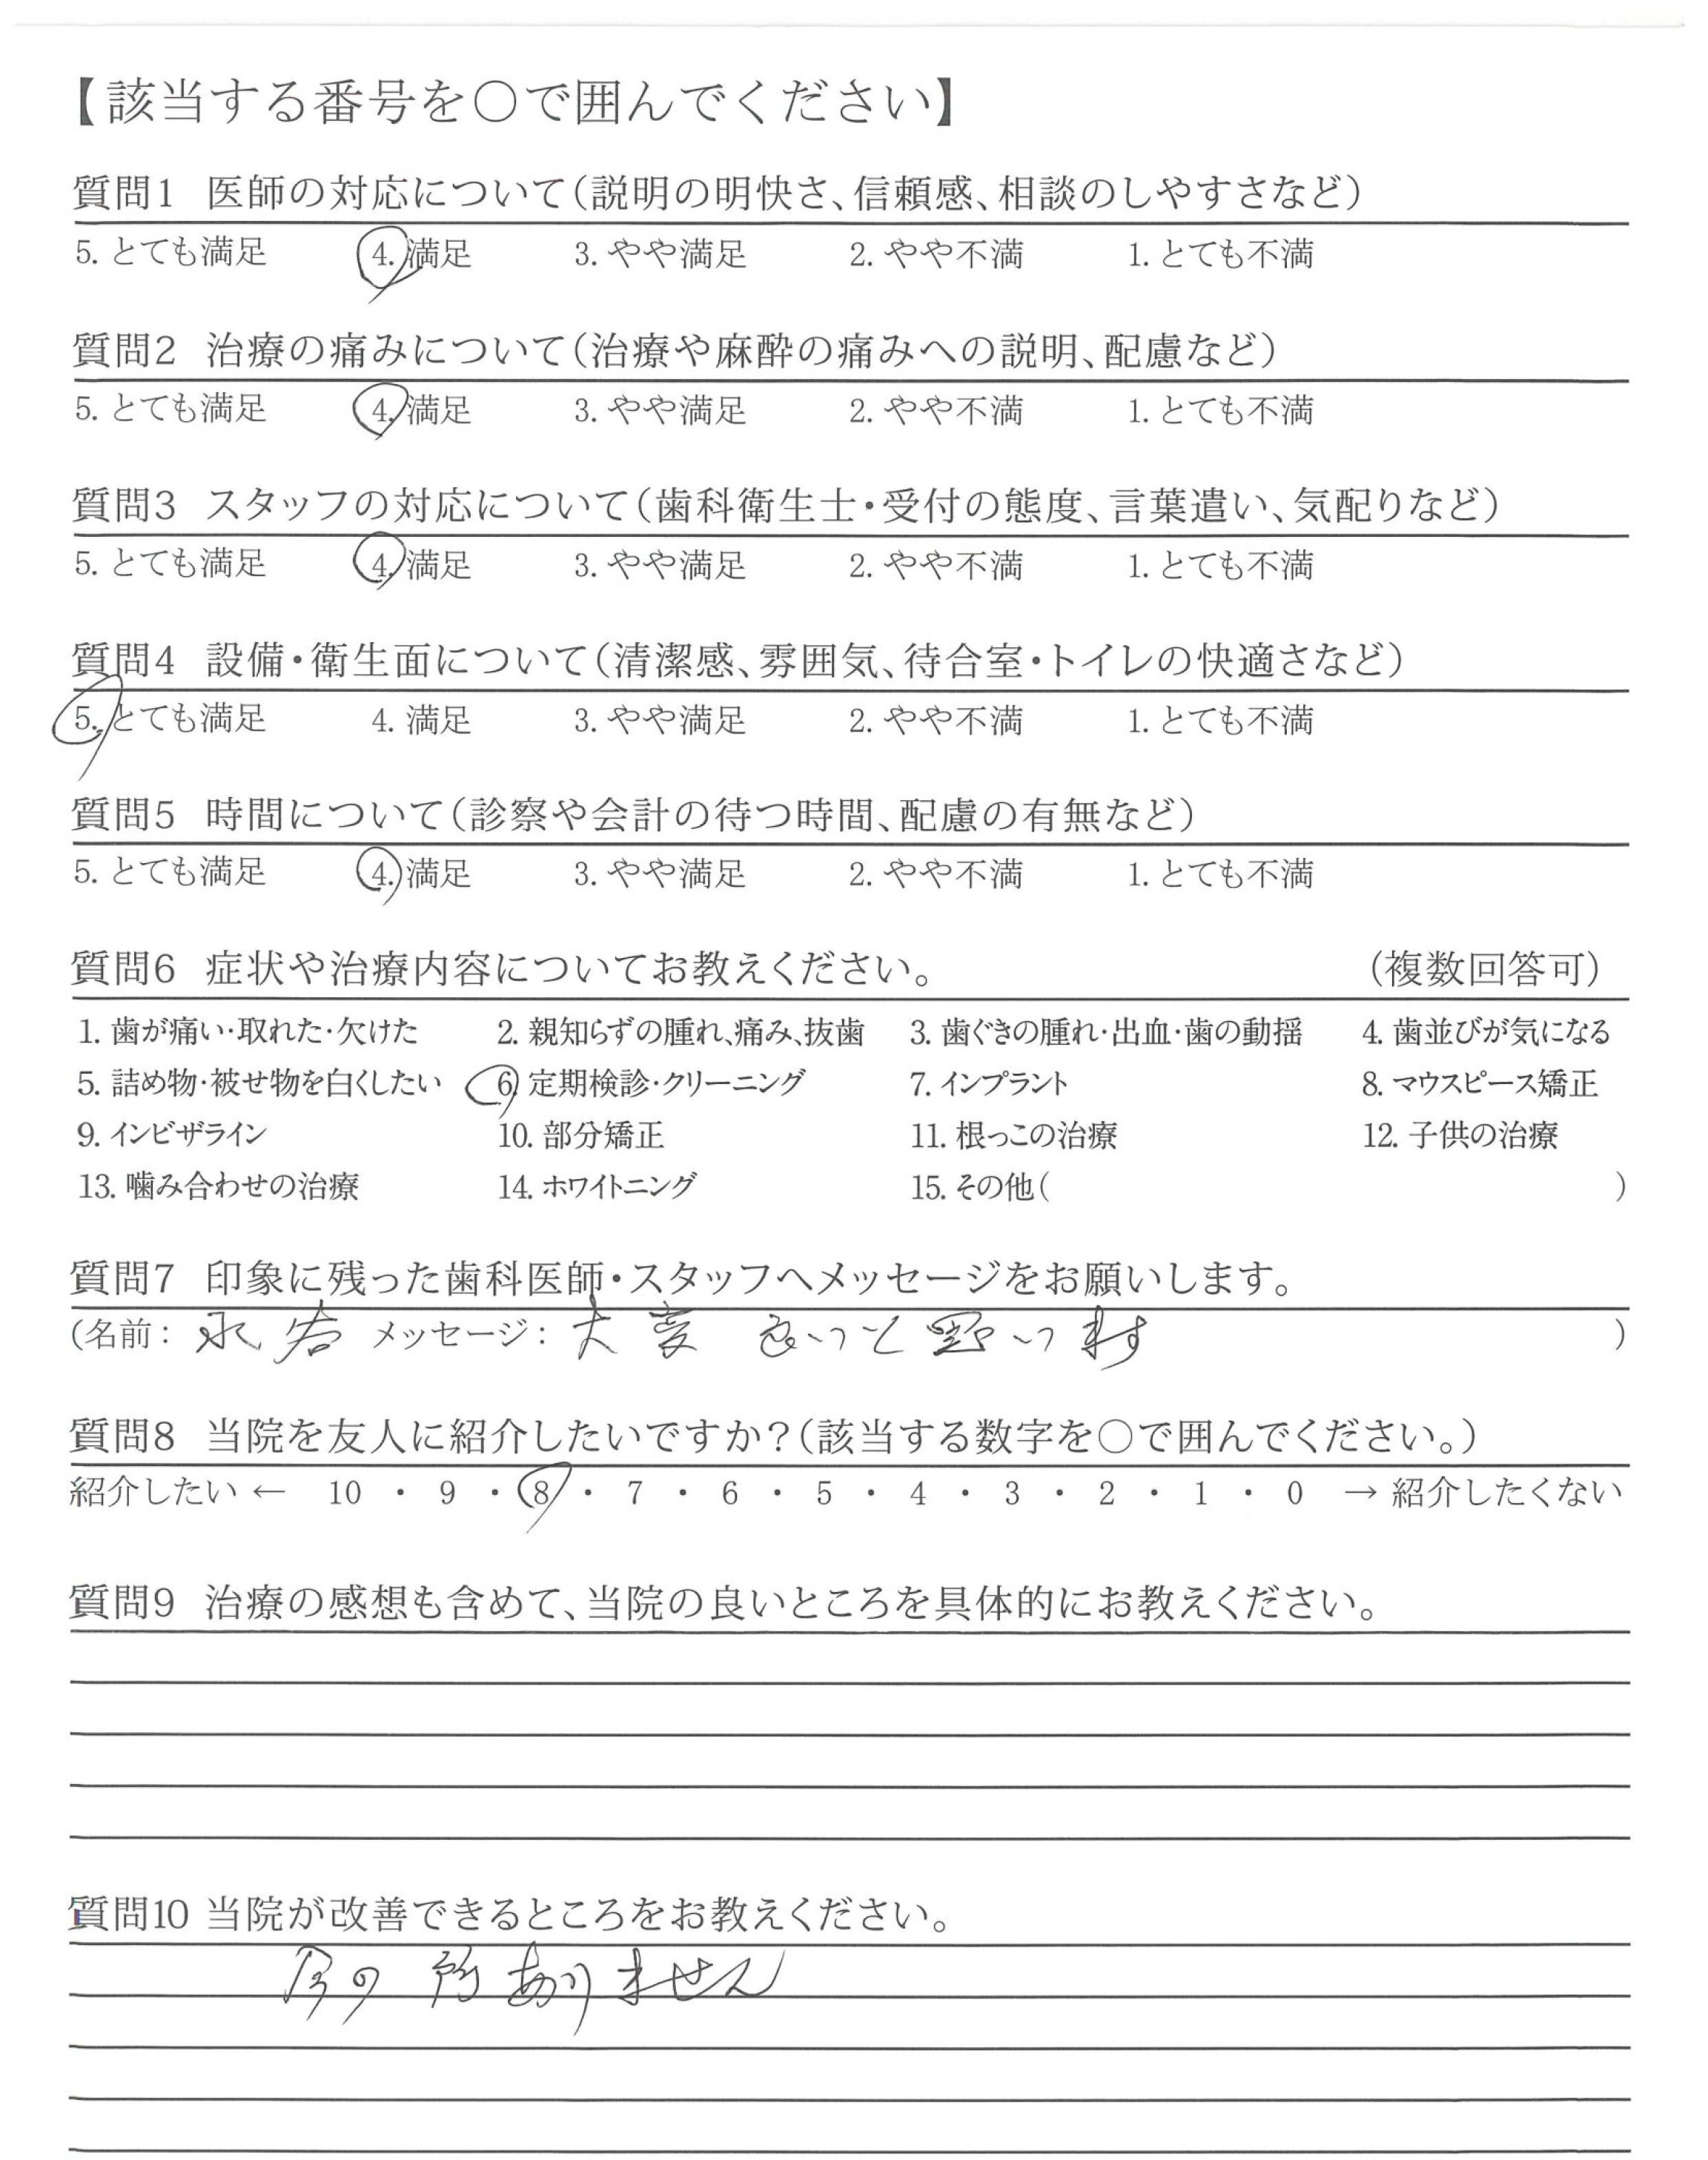 【該当する番号を○で囲んでください】
質問1 医師の対応について(説明の明快さ、信頼感、相談のしやすさなど)
5. とても満足 4. 満足 3. やや満足 2. やや不満 1. とても不満
質問2 治療の痛みについて(治療や麻酔の痛みへの説明、配慮など)
5. とても満足 4. 満足 3. やや満足 2. やや不満 1. とても不満
質問3 スタッフの対応について(歯科衛生士・受付の態度、言葉遣い、気配りなど)
5. とても満足 4. 満足 3. やや満足 2. やや不満 1. とても不満
質問4 設備・衛生面について(清潔感、雰囲気、待合室・トイレの快適さなど)
5. とても満足 4. 満足 3. やや満足 2. やや不満 1. とても不満
質問5 時間について(診察や会計の待つ時間、配慮の有無など)
5. とても満足 4. 満足 3. やや満足 2. やや不満 1. とても不満
質問6 症状や治療内容についてお教えください。 (複数回答可)
1. 歯が痛い・取れた・欠けた 2. 親知らずの腫れ、痛み、抜歯 3. 歯ぐきの腫れ・出血・歯の動揺 4. 歯並びが気になる
5. 詰め物・被せ物を白くしたい 6. 定期検診・クリーニング 7. インプラント 8. マウスピース矯正
9. インビザライン 10. 部分矯正 11. 根っこの治療 12. 子供の治療
13. 噛み合わせの治療 14. ホワイトニング 15. その他( )
質問7 印象に残った歯科医師・スタッフへメッセージをお願いします。
(名前: メッセージ: 大変 良いと 思います )
質問8 当院を友人に紹介したいですか?(該当する数字を○で囲んでください。)
紹介したい ← 10 ・ 9 ・ 8 ・ 7 ・ 6 ・ 5 ・ 4 ・ 3 ・ 2 ・ 1 ・ 0 → 紹介したくない
質問9 治療の感想も含めて、当院の良いところを具体的にお教えください。
質問10 当院が改善できるところをお教えください。
今の 所 ありません